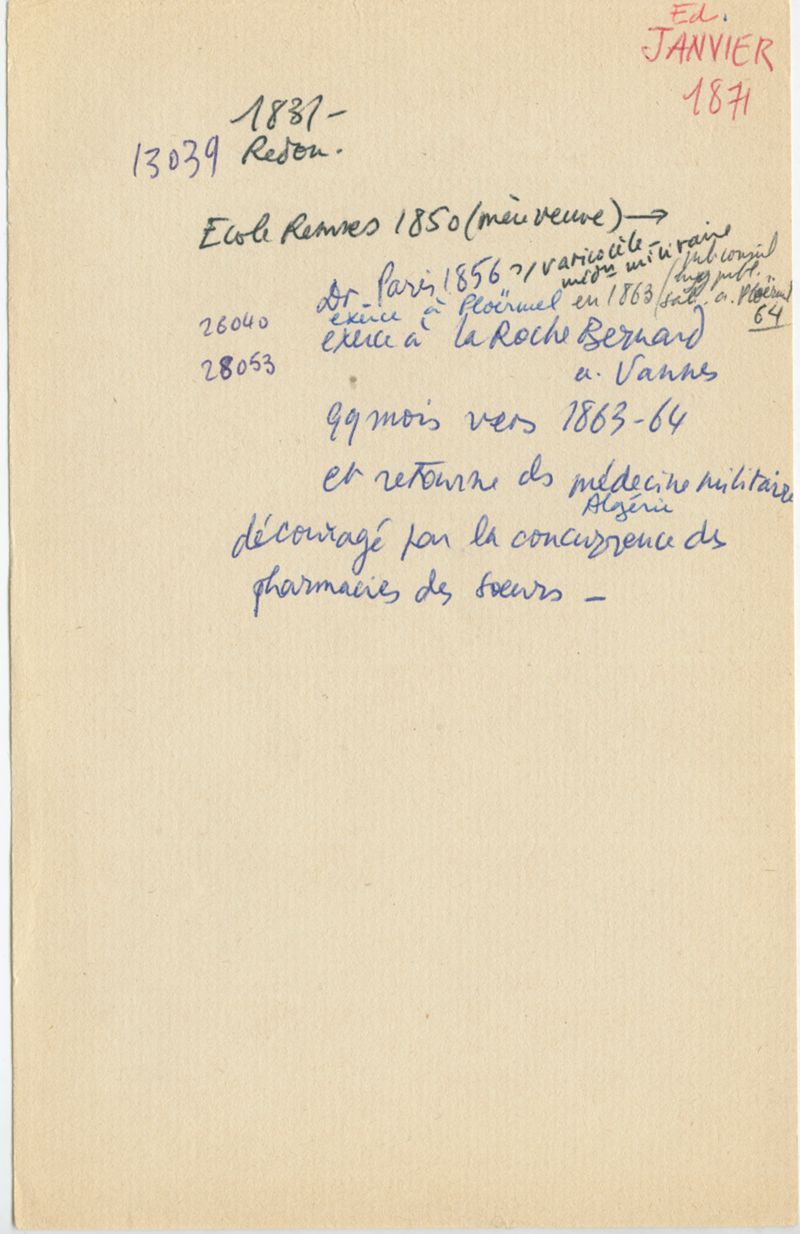 Ed.
JANVIER
1871
1831-
13039 Redon.
Ecole Rennes 1850 (mère veuve) →
Dr. Paris 1856 varicocèle - médn militaire
exerce à Ploërmel en 1863 (hyg publ. sal. a. Ploërmel
64
26040 exerce à la Roche Bernard
28053 a. Vannes
qq mois vers 1863-64
et retourne ds médecine militaire
Algérie
découragé par la concurrence des
pharmacies des soeurs -